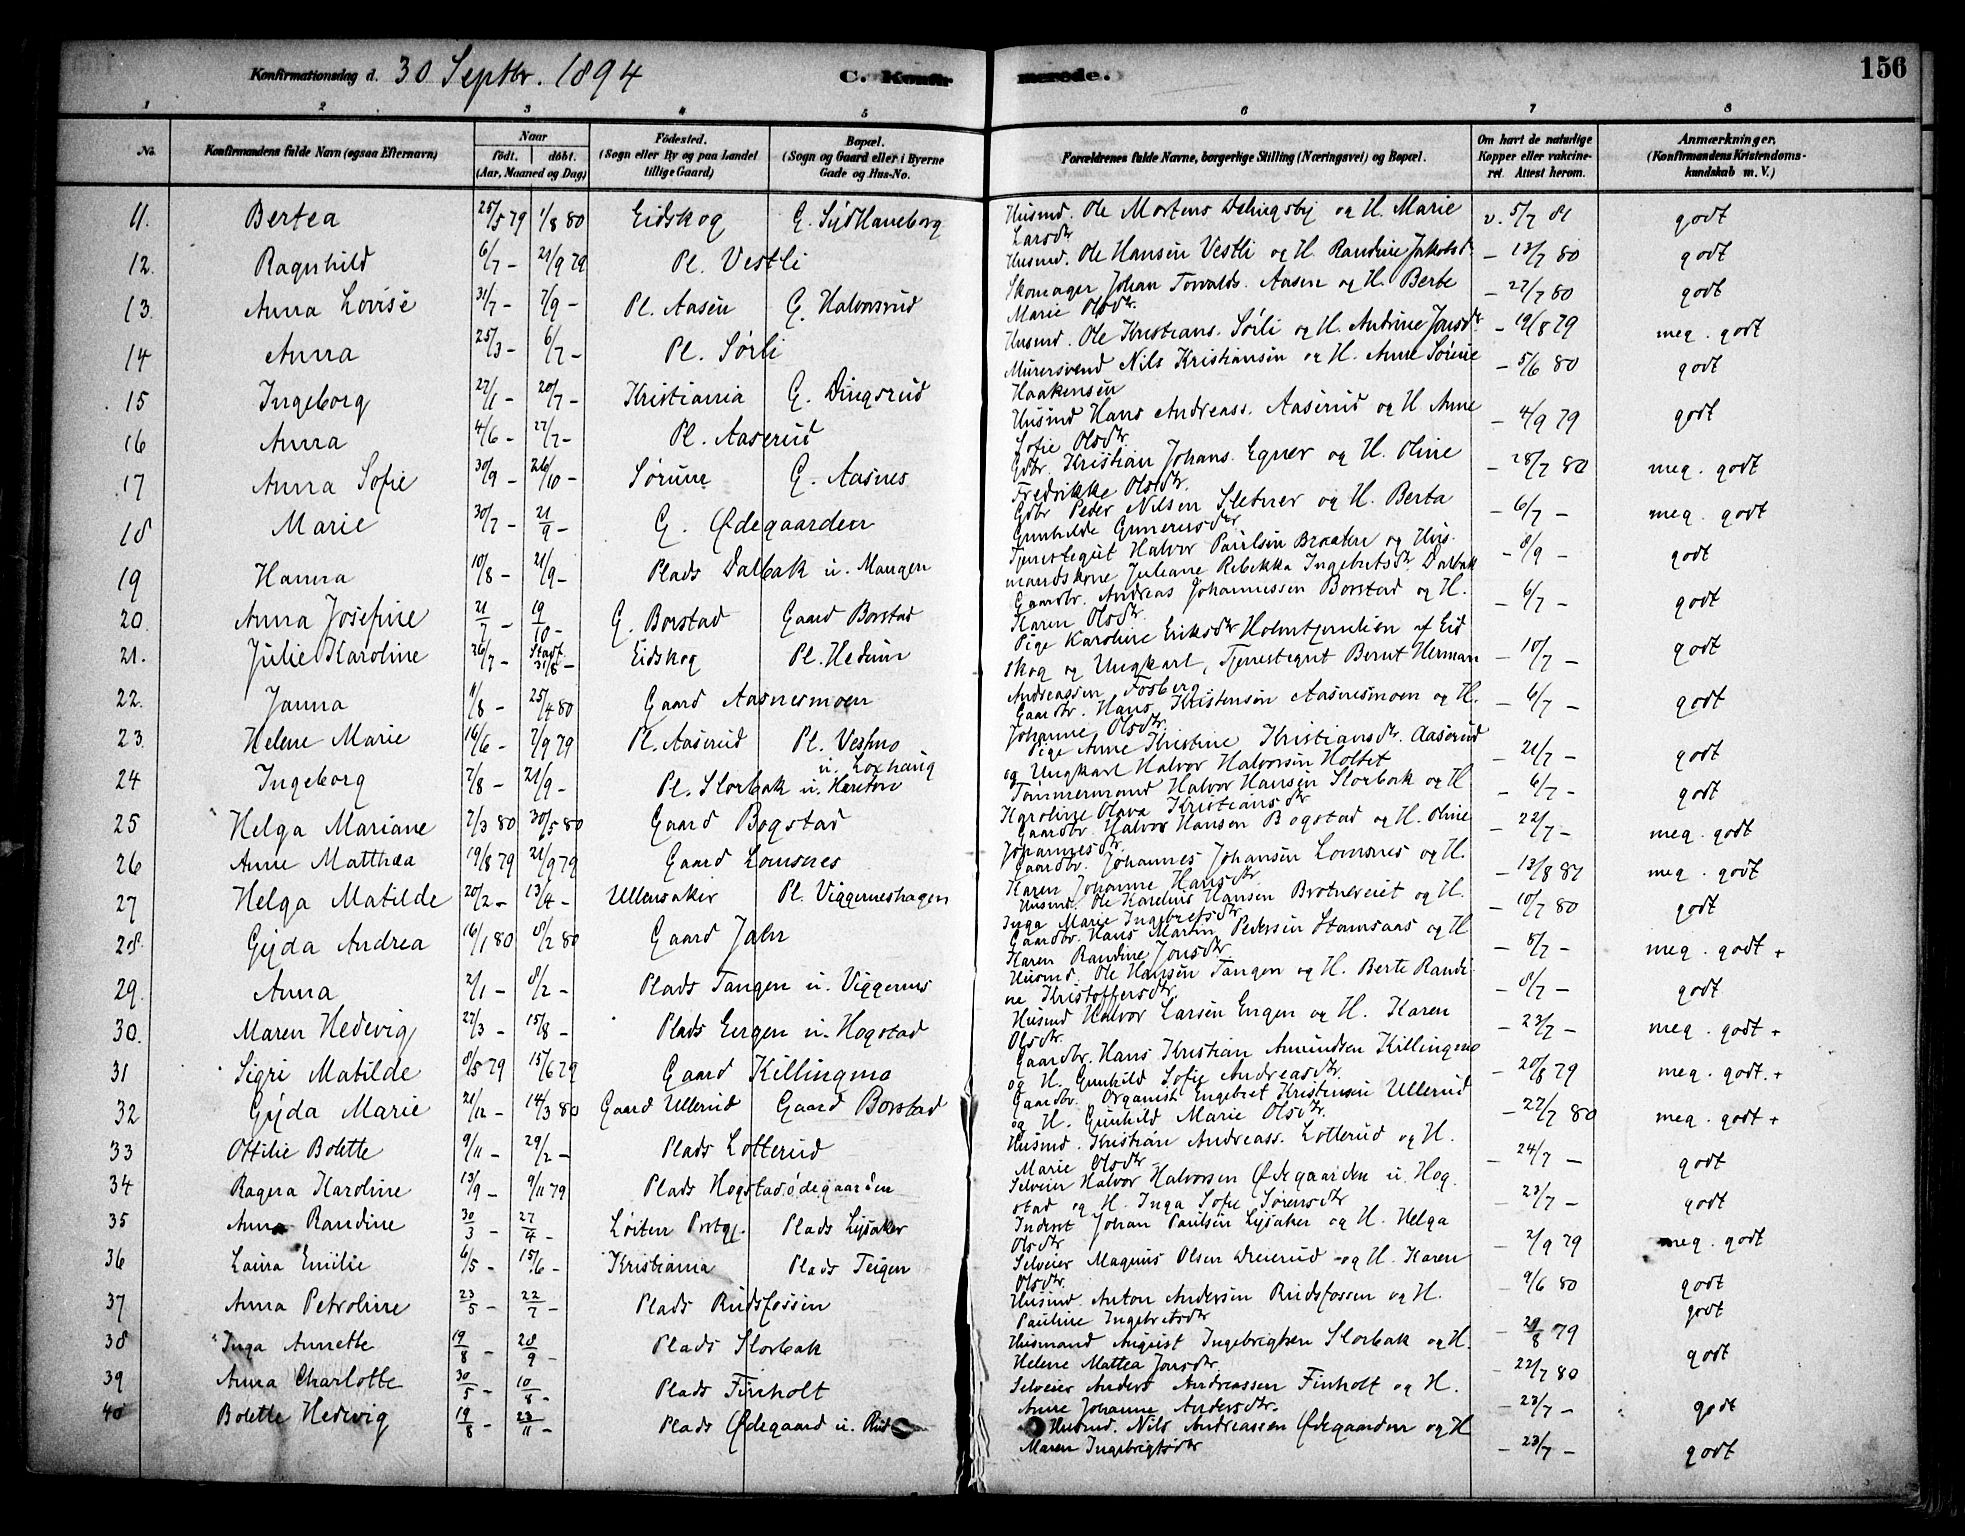 Konfirmationsdag d. 30 Septbr. 1894 C. Konfirmerede. 156
1 2 3 4 5 6 7 8
No. Konfirmandens fulde Navn (ogsaa Efternavn) Naar født. døbt. (Aar, Maaned og Dag) Fødested. (Sogn eller By og paa Landet tillige Gaard) Bopæl. (Sogn og Gaard eller i Byerne Gade og Hus-No. Forældrenes fulde Navne, borgerlige Stilling (Næringsvei) og Bopæl. Om havt de naturlige Kopper eller vakcineret. Attest herom. Anmærkninger. (Konfirmandens Kristendomskundskab m. V.)
11. Bertea 25/5 79 1/8 80 Eidskog G. Syd Haneborg Husmd. Ole Mortens og H. Marie Larsdtr v. 5/7 81 godt
12. Ragnhild 6/7 - 21/9 79 Pl. Vestli Husmd. Ole Hansen Vestli og H. Randine Jakobsd. - 13/7 80 godt
13. Anna Lovise 31/7 - 7/9 - Pl. Aasen G. Halvorsrud Skomager Johan Torvalds. Aasen og H. Berte Marie Olsdtr. - 27/7 80 godt
14 Anna 25/3 - 6/7 - Pl. Sørli Husmd. Ole Kristians. Sørli og H. Andrine Jonsdtr - 19/8 79 meg. godt
15 Ingeborg 27/1 - 20/7 - Kristiania G. Dingsrud Murersvend Nils Kristiansen og H. Anne Sørine Haakensen - 5/6 80 godt
16 Anna 4/6 - 27/7 - Pl. Aaserud Husmd Hans Andreass. Aaserud og H Anne Sofie Olsdtr. - 4/9 79 godt
17 Anna Sofie 30/9 - 26/10 - Sørum G. Aasnes Gdbr. Kristian Johans. Egner og H. Oline Fredrikke Olsdtr. - 28/7 80 meg. godt
18 Marie 30/7 - 21/9 - G. Ødegaarden Gdbr Peder Nilsen Sletner og H. Berta Gunhilde Gunerusdtr - 6/7 - meg. godt
19 Hanna 10/8 - 21/9 - Plads Dalbak u. Mangen Tjenestegut Halvor Paulsen Braaten og Husmandskone Juliane Rebekka Ingebretsdtr Dalbak - 8/9 - godt
20. Anna Josefine 21/7 - 19/10 - G. Borstad Gaard Borstad Gaardbr. Andreas Johannessen Borstad og H. Karen Olsdtr - 6/7 - godt
21. Julie Karoline 26/7 - Stadf. 31/8 - Eidskog Pl. Hedum Pige Karoline Eriksdtr Holmtjernlien af Eidskog og Ungkarl, Tjenestegut Bernt Herman Andreassen Fosberg - 10/7 - godt
22. Janna 11/8 - 25/4 80 Gaard Aasnesmoen Gaardbr. Hans Kristensen Aasnesmoen og H. Johanne Olsdtr. - 6/7 - godt
23. Helene Marie 16/6 - 7/9 79 Pl. Aaserud Pl. u. Loxhaug Pige Anne Kristine Kristiansdtr. Aaserud og Ungkarl Halvor Halvorsen Holtet - 21/7 - godt
24 Ingeborg 7/8 - 21/9 - Pl. Slorbak u. Hereton Tømmermand Halvor Hansen Slorbak og H Karoline Olava Kristiansdtr - 6/7 - godt
25 Helga Mariane 2/3 80 30/5 80 Gaard Bogstad Gaardbr. Halvor Hansen Bogstad og H. Oline Johannesdtr. - 22/7 - meg. godt
26 Anne Matthæa 19/8 79 21/9 79 Gaard Lomsnes Gaardbr. Johannes Johansen Lomsnes og H. Karen Johanne Hansdtr - 13/8 81 meg. godt
27 Helga Matilde 20/2 - 13/4 - Ullensaker Pl. Viggerneshagen Husmd. Ole Karelius Hansen Brotnereiet og H. Inga Marie Ingebretsdtr. - 10/7 80 godt
28. Gyda Andrea 16/1 80 8/2 80 Gaard Jahr Gaardbr. Hans Martin Pedersen Stomsaas og H Karen Randine Jonsdtr - 5/7 - meg. godt +
29. Anna 2/1 - 8/2 - Plads Tangen u. Viggernes Husmd. Ole Hansen Tangen og H. Berte Randine Kristoffersdtr. - 8/7 - godt
30. Maren Hedevig 27/3 - 15/8 - Plads Engen u. Hogstad Husmd Halvor Larsen Engen og H. Karen Olsdtr. - 23/7 - meg. godt +
31 Sigri Matilde 8/5 79 15/6 79 Gaard Killingmo Gaardbr. Hans Kristian Amundsen Killingmo og H. Gunhild Sofie Andreasdtr. - 20/8 79 meg. godt. +
32 Gyda Marie 21/12 - 14/3 80 Gaard Ullerud Gaard Borstad Gaardbr. Organist Engebret Kristensen Ullerud og H. Gunhild Marie Olsdtr. - 27/7 80 meg. godt +
33 Ottilie Bolette 9/11 - 29/2 - Plads Lotterud Husmd. Kristian Andreass. Lotterud og H. Marie Olsdtr. - 24/7 - godt
34 Ragna Karoline 13/9 - 9/11 79 Plads Hogstadødegaarden Selveier Halvor Halvorsen Ødegaarden u. Hogstad og H. Inga Sofie Sørensdtr - 23/7 - godt
35 Anna Randine 30/3 - 27/4 - Løiten Prstgj. Plads Lysaker Inderst Johan Paulsen Lysaker og H. Helga Olsdtr - 2/9 79 meg. godt
36 Laura Emilie 6/5 - 15/6 - Kristiania Plads Teigen Selveier Magnus Olsen Dreierud og H. Karen Olsdtr. - 9/6 80 godt
37 Anna Petroline 23/5 - 22/7 - Plads Rudsfossen Husmd. Anton Andersen Rudsfossen og H. Pauline Ingebretsdtr - 29/8 79 godt
38 Inga Annette 19/8 - 28/9 - Plads Slorbak Husmand August Ingebrigtsen Slorbak og H. Helene Mattea Jonsdtr. - 22/7 80 godt
39 Anna Charlotte 30/5 - 10/8 - Plads Finholt Selveier Anders Andreassen Finholt og H. Anne Johanne Andersdtr. - 23/7 - godt
40 Bolette Hedevig 19/8 - 23/11 - Plads Ødegaard u. Rud Husmd. Nils Andreassen Ødegaarden og H Maren Ingebrigtsdtr - 23/7 - godt